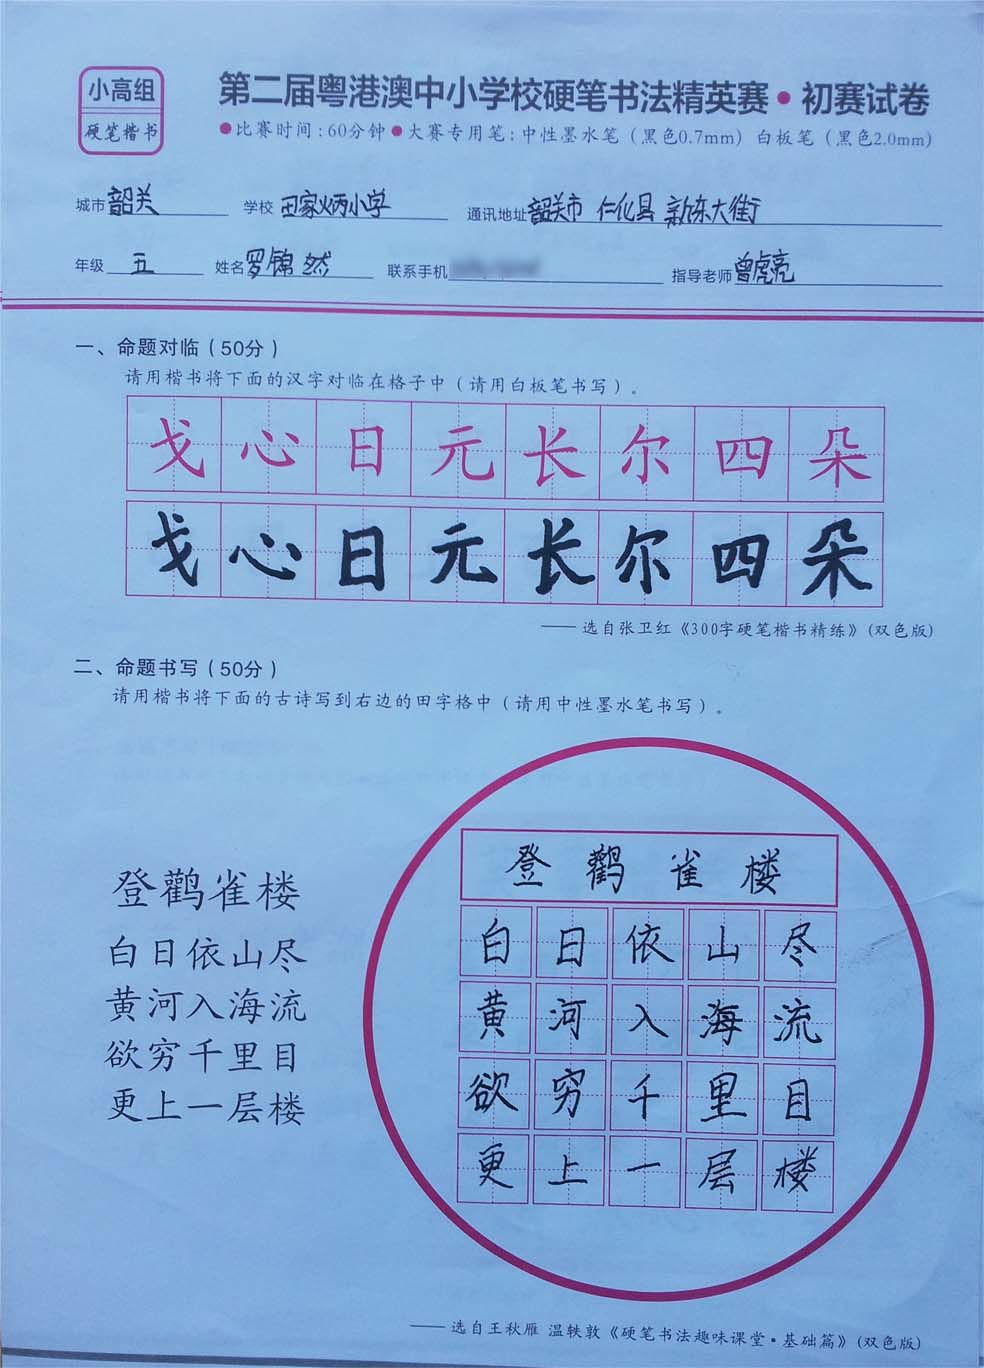 小高组
硬笔楷书
第二届粤港澳中小学校硬笔书法精英赛•初赛试卷
●比赛时间:60分钟●大赛专用笔:中性墨水笔(黑色0.7mm) 白板笔(黑色2.0mm)
城市 韶关 学校 田家炳小学 通讯地址 韶关市 仁化县 新东大街
年级 五 姓名 罗锦然 联系手机 指导老师 曾虎亮
一、命题对临(50分)
请用楷书将下面的汉字对临在格子中(请用白板笔书写)。
戈心日元长尔四朵
戈心日元长尔四朵
—— 选自张卫红《300字硬笔楷书精练》(双色版)
二、命题书写(50分)
请用楷书将下面的古诗写到右边的田字格中(请用中性墨水笔书写)。
登鹳雀楼
白日依山尽
黄河入海流
欲穷千里目
更上一层楼
登鹳雀楼
白日依山尽
黄河入海流
欲穷千里目
更上一层楼
—— 选自王秋雁 温轶敦《硬笔书法趣味课堂·基础篇》(双色版)